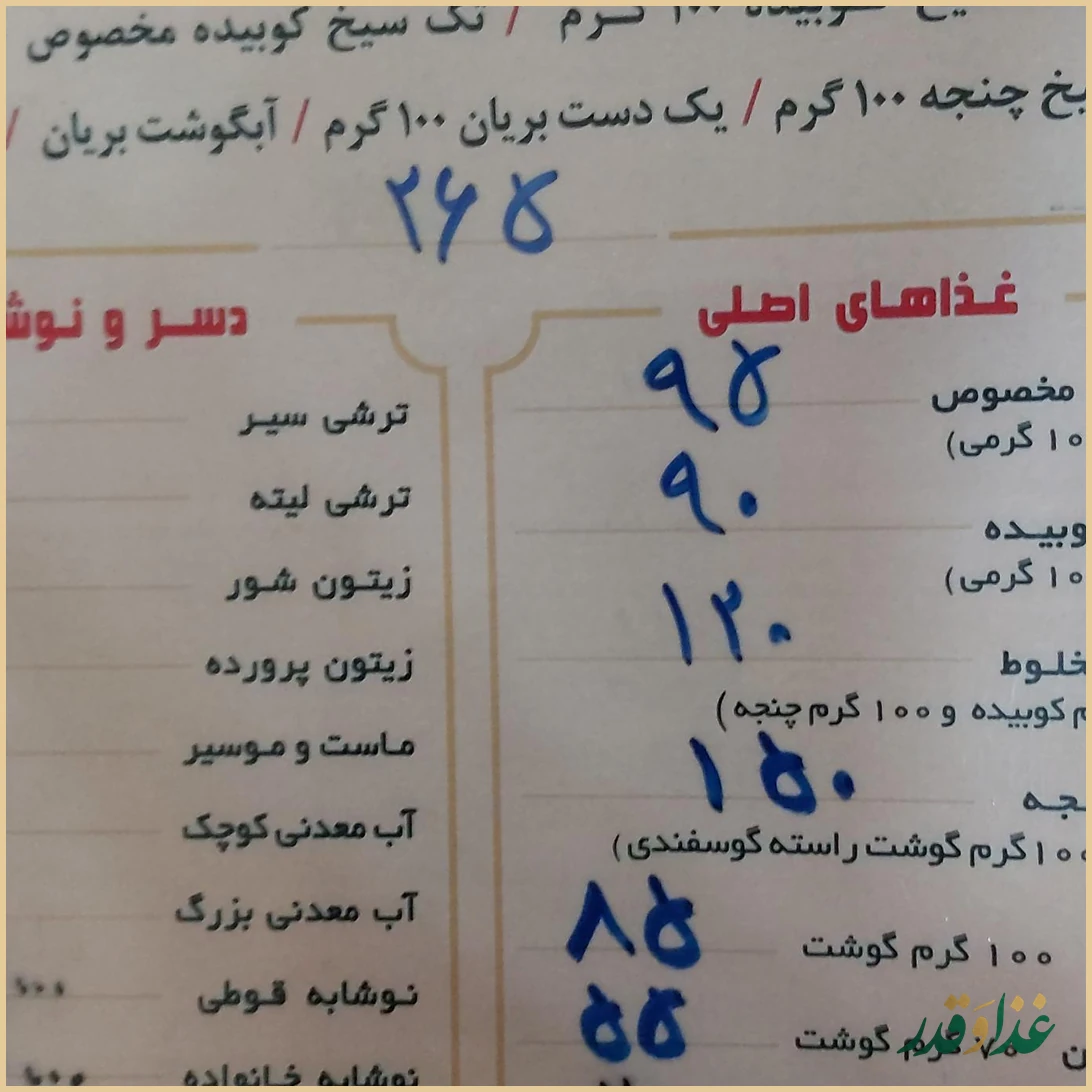 تک سیخ کوبیده مخصوص
چنجه ۱۰۰ گرم / یک دست بریان ۱۰۰ گرم / آبگوشت بریان /
۲۶۵
غذاهای اصلی
مخصوص ۹۵
گرمی)
۹۰
گرمی)
۱۲۰
کوبیده و ۱۰۰ گرم چنجه)
۱۵۰
۱۰۰ گرم گوشت راسته گوسفندی)
۱۰۰ گرم گوشت ۸۵
گرم گوشت ۵۵
دسر و
ترشی سیر
ترشی لیته
زیتون شور
زیتون پرورده
ماست و موسیر
آب معدنی کوچک
آب معدنی بزرگ
نوشابه قوطی
نوشابه خانواده
غذا و قدر